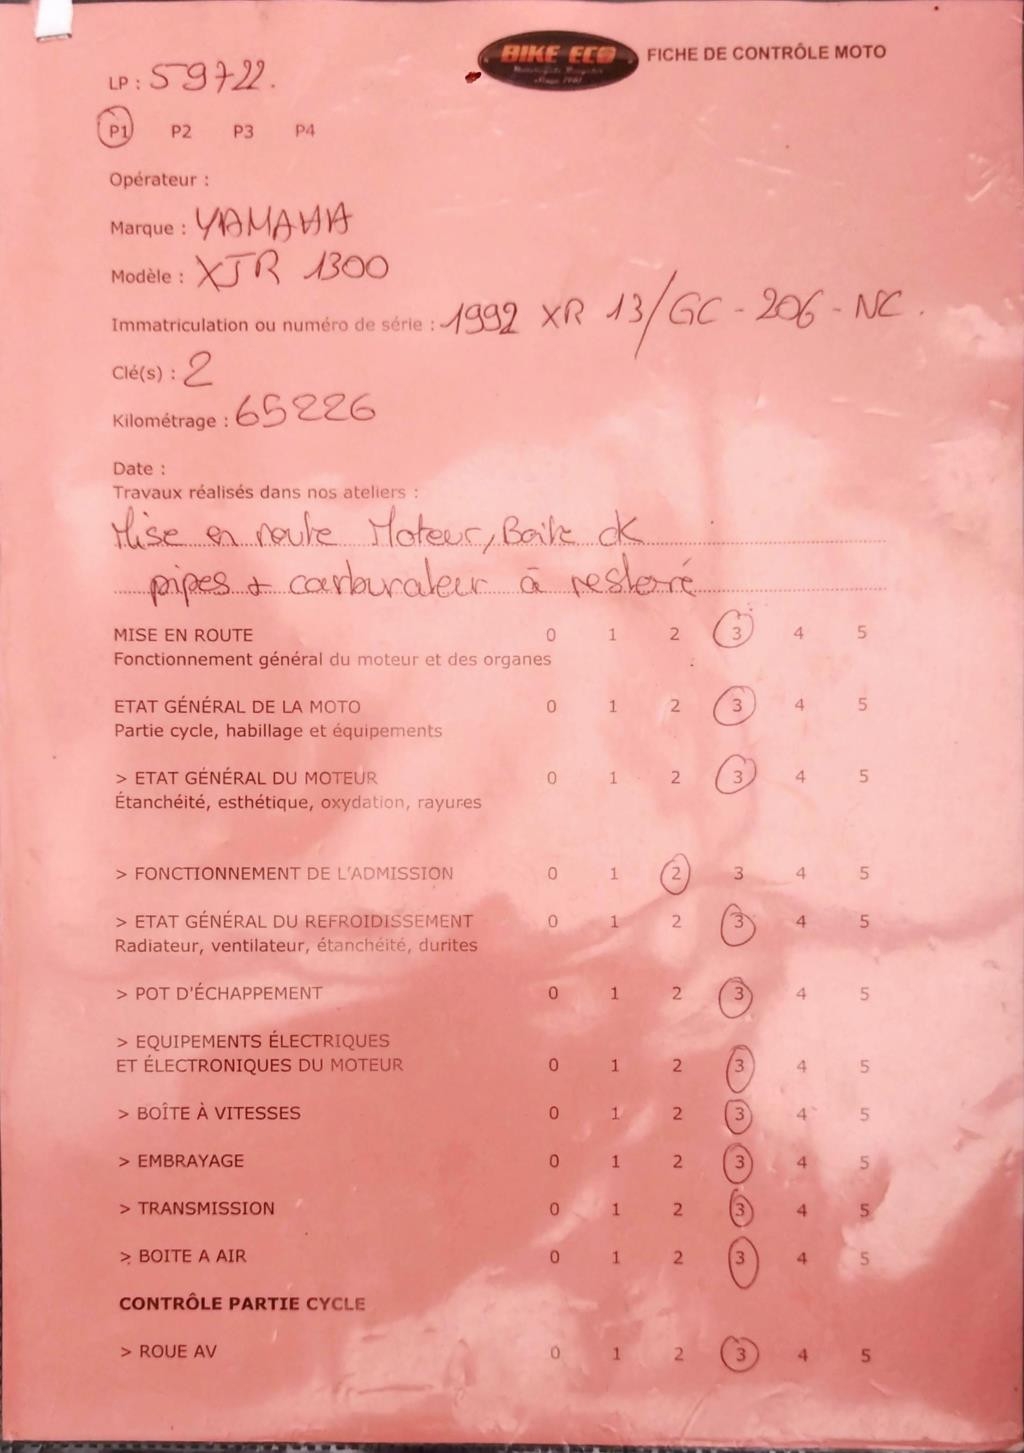 BIKE ECO
FICHE DE CONTRÔLE MOTO
LP : 59722.
P1 P2 P3 P4
Opérateur :
Marque : YAMAHA
Modèle : XJR 1300
Immatriculation ou numéro de série : 1992 XR 13/GC-206-NC.
Clé(s) : 2
Kilométrage : 65226
Date :
Travaux réalisés dans nos ateliers :
Mise en route Moteur, Boite ok
pipes + carburateur à restoré
MISE EN ROUTE 0 1 2 3 4 5
Fonctionnement général du moteur et des organes
ETAT GÉNÉRAL DE LA MOTO 0 1 2 3 4 5
Partie cycle, habillage et équipements
> ETAT GÉNÉRAL DU MOTEUR 0 1 2 3 4 5
Étanchéité, esthétique, oxydation, rayures
> FONCTIONNEMENT DE L'ADMISSION 0 1 2 3 4 5
> ETAT GÉNÉRAL DU REFROIDISSEMENT 0 1 2 3 4 5
Radiateur, ventilateur, étanchéité, durites
> POT D'ÉCHAPPEMENT 0 1 2 3 4 5
> EQUIPEMENTS ÉLECTRIQUES
ET ÉLECTRONIQUES DU MOTEUR 0 1 2 3 4 5
> BOÎTE À VITESSES 0 1 2 3 4 5
> EMBRAYAGE 0 1 2 3 4 5
> TRANSMISSION 0 1 2 3 4 5
> BOITE A AIR 0 1 2 3 4 5
CONTRÔLE PARTIE CYCLE
> ROUE AV 0 1 2 3 4 5